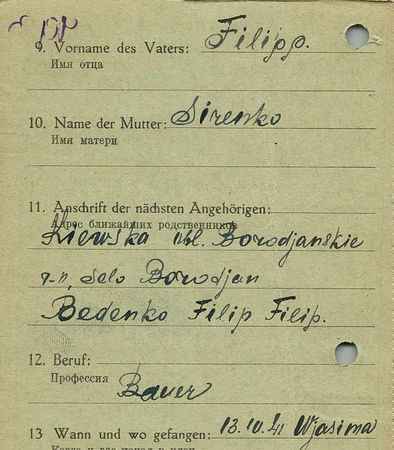 9. Vorname des Vaters: Filipp.
Имя отца
10. Name der Mutter: Sirenko
Имя матери
11. Anschrift der nächsten Angehörigen:
Адрес ближайших родственников
Kiewska obl. Borodjanskie
r-n, selo Borodjan
Bedenko Filip Filip.
12. Beruf:
Профессия
Bauer
13 Wann und wo gefangen: 13.10.41 Wjasima
Когда и где попал в плен